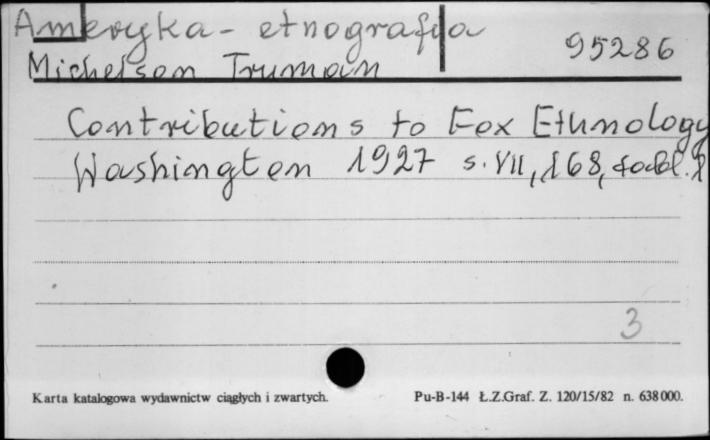 Ameryka - etnografja
95286
Michelson Truman
Contributions to Fox Ethnology
Washington 1927 s. VII, 168, tabl. 2
3
Karta katalogowa wydawnictw ciągłych i zwartych.
Pu-B-144 Ł.Z.Graf. Z. 120/15/82 n. 638000.